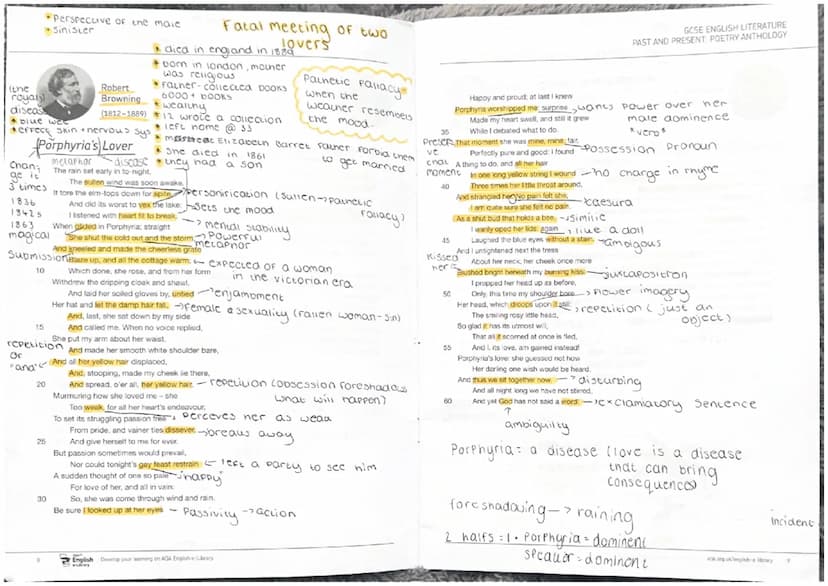 • Perspective of the male
• sinister
Fatal meeting of two
lovers
• died in england in 1889
• born in london, mother
was religious
• Father-collected books
6000 + books
• wealthy
• 12 wrote a collection
• left home @ 33
• Elizabeth Barret Father forbid them
to get married
• She died in 1861
• they had a son
Pathetic Fallacy
when the
weather resembles
the mood.
(the
royals
disease
• blue wee
• effect skin + nervous sys
Robert
Browning
(1812–1889)
Porphyria's Lover
metaphor disease
Chang
ge it
3 times
1836
1842s
1863
The rain set early in to-night,
The sullen wind was soon awake,
It tore the elm-tops down for spite, → Personification (sullen → pathetic
fallacy)
And did its worst to vex the lake: → sets the mood
I listened with heart fit to break, → mental stability
magical When glided in Porphyria; straight
She shut the cold out and the storm, → Powerful
metaphor
Submission And kneeled and made the cheerless grate
Blaze up, and all the cottage warm; ← expected of a woman
in the victorian era
10 Which done, she rose, and from her form
Withdrew the dripping cloak and shawl,
And laid her soiled gloves by, untied → enjamoment
Her hat and let the damp hair fall, → female asexuality (fallen woman-sin)
And, last, she sat down by my side
15 And called me. When no voice replied,
She put my arm about her waist,
repetition
of
"and"
And made her smooth white shoulder bare,
And all her yellow hair displaced,
And, stooping, made my cheek lie there,
20 And spread, o'er all, her yellow hair, – repetition (obsession foreshadows
what will happen)
Murmuring how she loved me – she
Too weak, for all her heart's endeavour,
To set its struggling passion free → perceives her as weak
From pride, and vainer ties dissever, → breaks away
25 And give herself to me for ever.
But passion sometimes would prevail,
Nor could tonight's gay feast restrain ← left a party to see him
"happy"
A sudden thought of one so pale
For love of her, and all in vain:
30 So, she was come through wind and rain.
Be sure I looked up at her eyes – Passivity → action
8
English
e-Library
Develop your learning on AQA English e-Library
GCSE ENGLISH LITERATURE
PAST AND PRESENT: POETRY ANTHOLOGY
Happy and proud; at last I knew
Porphyria worshipped me; surprise → wants power over her
male dominence
Made my heart swell, and still it grew
35 While I debated what to do. "verb"
That moment she was mine, mine, fair, Possession Pronoun
Perfectly pure and good: I found
moment
A thing to do, and all her hair
In one long yellow string I wound → no change in rhyme
40 Three times her little throat around,
And strangled her. No pain felt she; caesura
I am quite sure she felt no pain.
As a shut bud that holds a bee, → simile
I warily oped her lids: again → like a doll
45 Laughed the blue eyes without a stain. → ambigous
And I untightened next the tress
About her neck; her cheek once more
Kissed
her
Blushed bright beneath my burning kiss: → juxtaposition
I propped her head up as before,
50 Only, this time my shoulder bore → flower imagery
Her head, which droops upon it still: → repetition (just an
object)
The smiling rosy little head,
So glad it has its utmost will,
That all it scorned at once is fled,
55 And I, its love, am gained instead!
Porphyria's love: she guessed not how
Her darling one wish would be heard.
And thus we sit together now, → disturbing
And all night long we have not stirred,
60 And yet God has not said a word! → exclamatory sentence
ambiguility
Porphyria = a disease (love is a disease
that can bring
consequences)
foreshadowing → raining
incident
2 halfs = 1 • Porphyria = dominent
speaker = dominent
aqa.org.uk/english-e-library 9